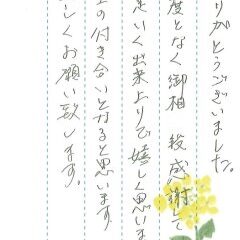 りがとうございました。
度となく御相談感謝して
足いく出来上りで嬉しく思いま
上の付き合いとなると思います
しくお願い致します。